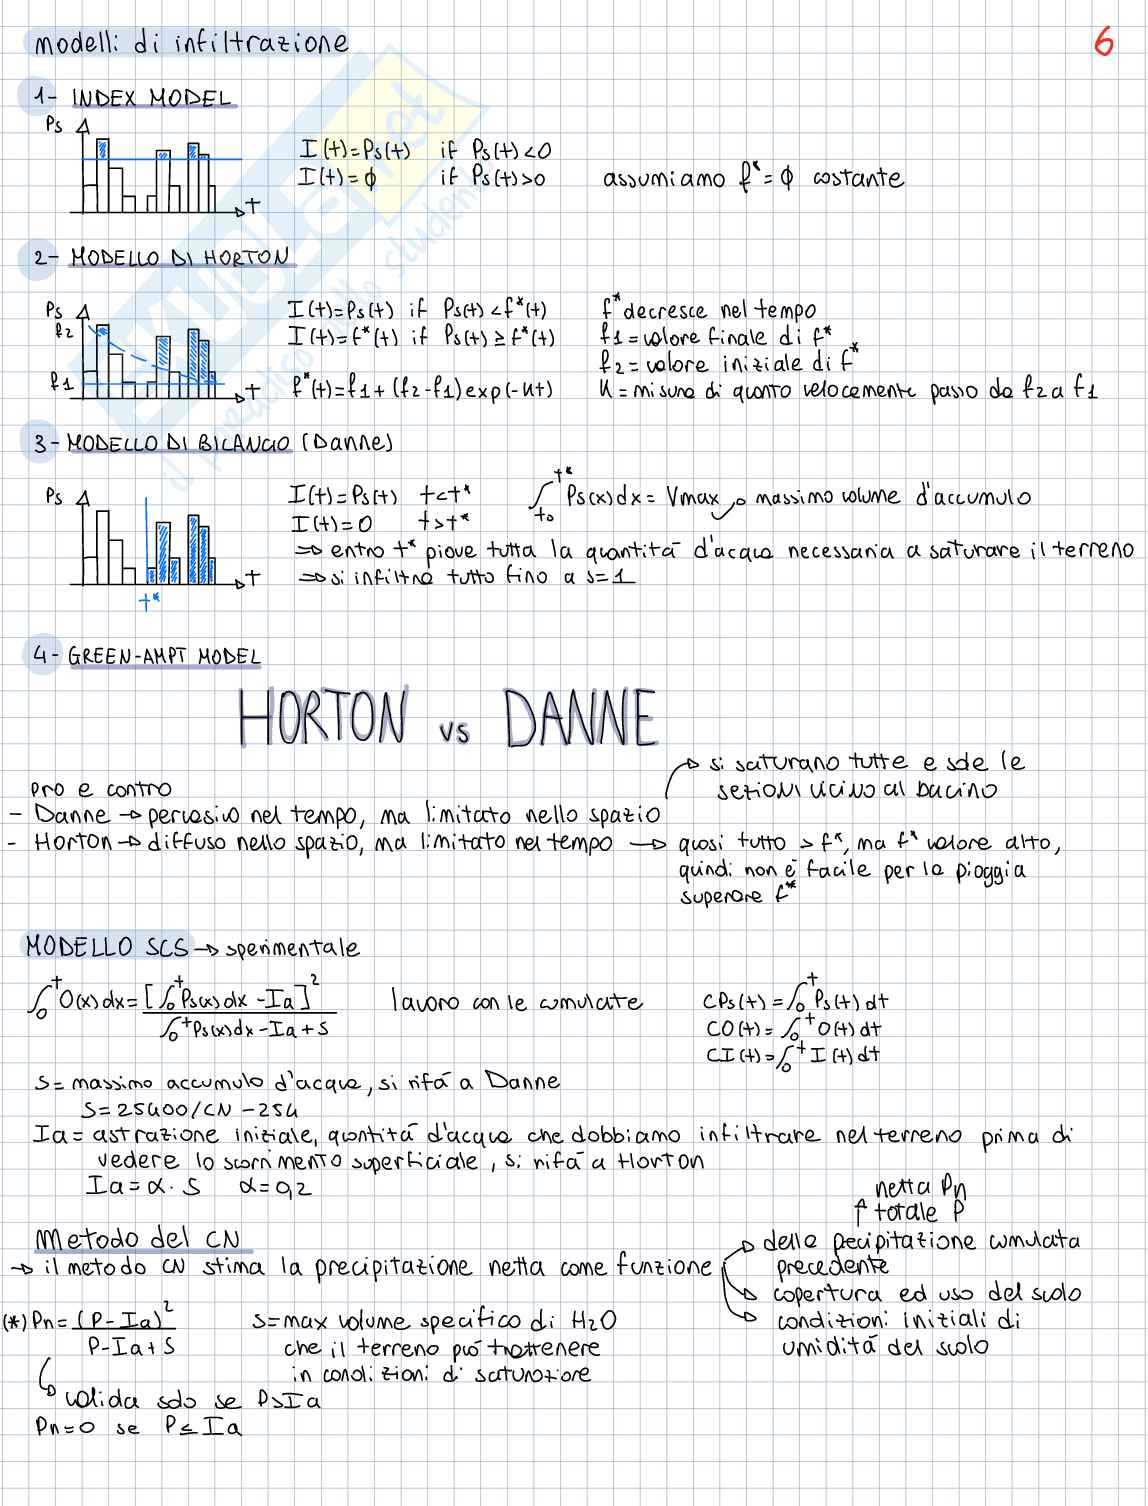 modelli di infiltrazione
6
1- INDEX MODEL
Ps
I(t)=Ps(t) if Ps(t)<0
I(t)=ϕ if Ps(t)>0 assumiamo f*=ϕ costante
t
2- MODELLO DI HORTON
Ps
f2
f1
t
I(t)=Ps(t) if Ps(t)<f*(t) f* decresce nel tempo
I(t)=f*(t) if Ps(t)≥f*(t) f1=valore finale di f*
f2=valore iniziale di f*
f*(t)=f1+(f2-f1)exp(-kt) k=misura di quanto velocemente passo da f2 a f1
3- MODELLO DI BILANCIO (Danne)
Ps
t
t*
I(t)=Ps(t) t<t* ∫t0^t* Ps(x)dx=Vmax → massimo volume d'accumulo
I(t)=0 t>t*
⇒ entro t* piove tutta la quantità d'acqua necessaria a saturare il terreno
⇒ si infiltra tutto fino a s=1
4- GREEN-AMPT MODEL
HORTON vs DANNE
→ si saturano tutte e solo le
sezioni vicino al bacino
pro e contro
- Danne → pervasivo nel tempo, ma limitato nello spazio
- Horton → diffuso nello spazio, ma limitato nel tempo → quasi tutto > f*, ma f* valore alto,
quindi non è facile per la pioggia
superare f*
MODELLO SCS → sperimentale
∫0^t O(x)dx=[∫0^t Ps(x)dx -Ia]²
∫0^t Ps(x)dx-Ia+S
lavoro con le cumulate
CPs(t)=∫0^t Ps(t)dt
CO(t)=∫0^t O(t)dt
CI(t)=∫0^t I(t)dt
S=massimo accumulo d'acqua, si rifà a Danne
S=25400/CN -254
Ia=astrazione iniziale, quantità d'acqua che dobbiamo infiltrare nel terreno prima di
vedere lo scorrimento superficiale, si rifà a Horton
Ia=α·S α=0,2
netta Pn
↑ totale P
Metodo del CN
→ il metodo CN stima la precipitazione netta come funzione
→ della pecipitazione cumulata
precedente
→ copertura ed uso del suolo
→ condizioni iniziali di
umidità del suolo
(*) Pn=(P-Ia)²
P-Ia+S
S=max volume specifico di H2O
che il terreno può trattenere
in condizioni di saturazione
→ valida solo se P>Ia
Pn=0 se P≤Ia